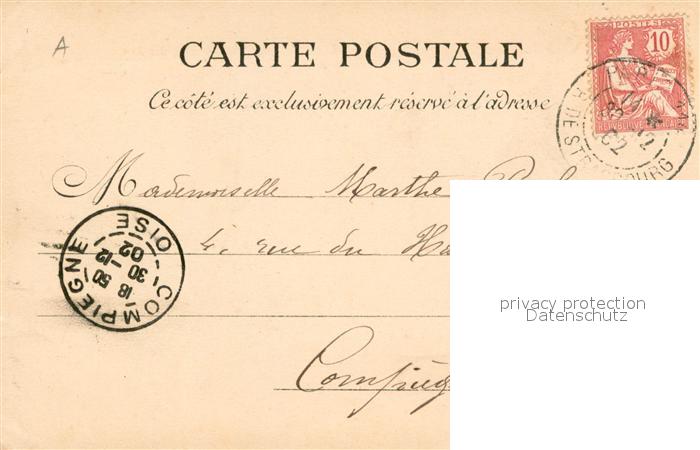 A
CARTE POSTALE
Ce côté est exclusivement réservé à l'adresse
POSTES
10
RÉPUBLIQUE FRANÇAISE
PARIS
R. DE STRASBOURG
Mademoiselle Marthe
4, rue du
Compièg
COMPIEGNE
OISE
18 50
30 -12
02
privacy protection
Datenschutz